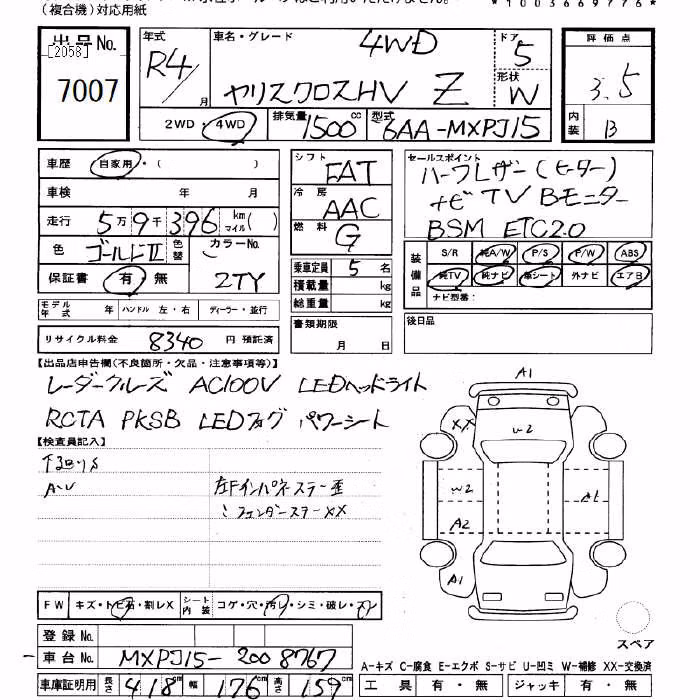 (複合機)対応用紙
*1003669776*
出品No. 年式 車名・グレード 4WD ドア 5 評価点
[2058]
7007 R4/月 ヤリスクロスHV Z 形状 W 3.5
2WD・4WD 排気量 1500cc 型式 6AA-MXPJ15 内装 B
車歴 自家用・( )
車検 年 月
走行 5万9千396 km マイル( )
色 ゴールドII 色替 カラーNo.
保証書 有・無 2TY
シフト FAT
冷房 AAC
燃料 G
乗車定員 5名
積載量 kg
総重量 kg
セールスポイント ハーフレザー(ヒーター)
ナビ TV Bモニター
BSM ETC2.0
装備品 S/R 純A/W P/S P/W ABS
純TV 純ナビ 革シート 外ナビ エアB
ナビ型番:
モデル年式 年 ハンドル 左・右 ディーラー・並行
リサイクル料金 8340 円 預託済
書類期限 月 日
後日品
【出品店申告欄(不良箇所・欠品・注意事項等)】
レーダークルーズ AC100V LEDヘッドライト
RCTA PKSB LEDフォグ パワーシート
【検査員記入】
下回りS
A~U
左Fインパネステー歪
〃フェンダーステーXX
A1
XX
W2
W2
A1
A2
A1
FW キズ・トビ石・割レX シート内装 コゲ・穴・汚レ・シミ・破レ・スレ
スペア
登録No.
車台No. MXPJ15-2008767
車庫証明用 長さ 418cm 幅 176cm 高さ 159cm
A-キズ C-腐食 E-エクボ S-サビ U-凹ミ W-補修 XX-交換済
工具 有・無 ジャッキ 有・無